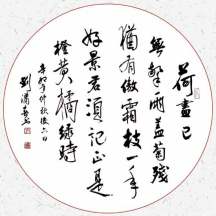 荷盡已
無擎雨蓋菊殘
猶有傲霜枝一年
好景君須記正是
橙黄橘緑時
辛卯年仲秋後六日
劉